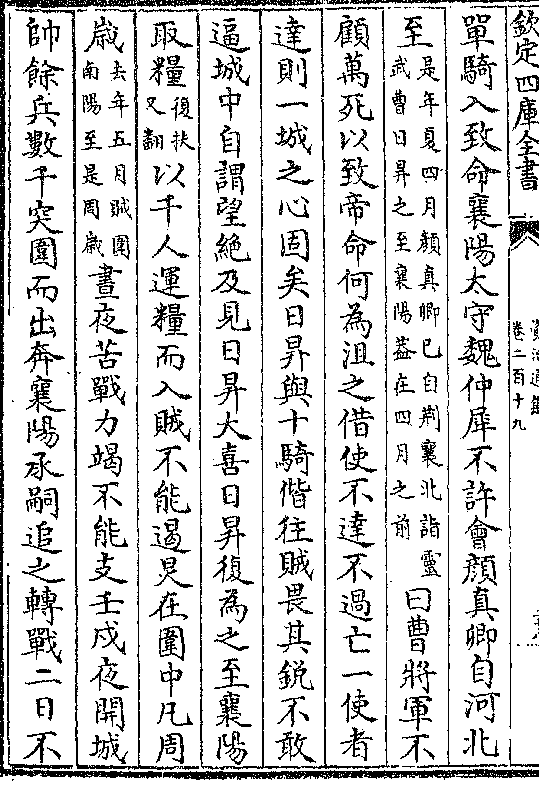 欽定四庫全書
資治通鑑
卷二百十九
單騎入致命襄陽太守魏仲犀不許會顔真卿自河北
至是年夏四月顔真卿已自荆襄北詣靈武曹日昇之至襄陽葢在四月之前曰曹將軍不
顧萬死以致帝命何為沮之借使不達不過亡一使者
達則一城之心固矣日昇與十騎偕往賊畏其銳不敢
逼城中自謂望絶及見日昇大喜日昇復為之至襄陽
取糧復扶又翻以千人運糧而入賊不能遏炅在圍中凡周
歲去年五月賊圍南陽至是周歲晝夜苦戰力竭不能支壬戌夜開城
帥餘兵數千突圍而出奔襄陽承嗣追之轉戰二日不